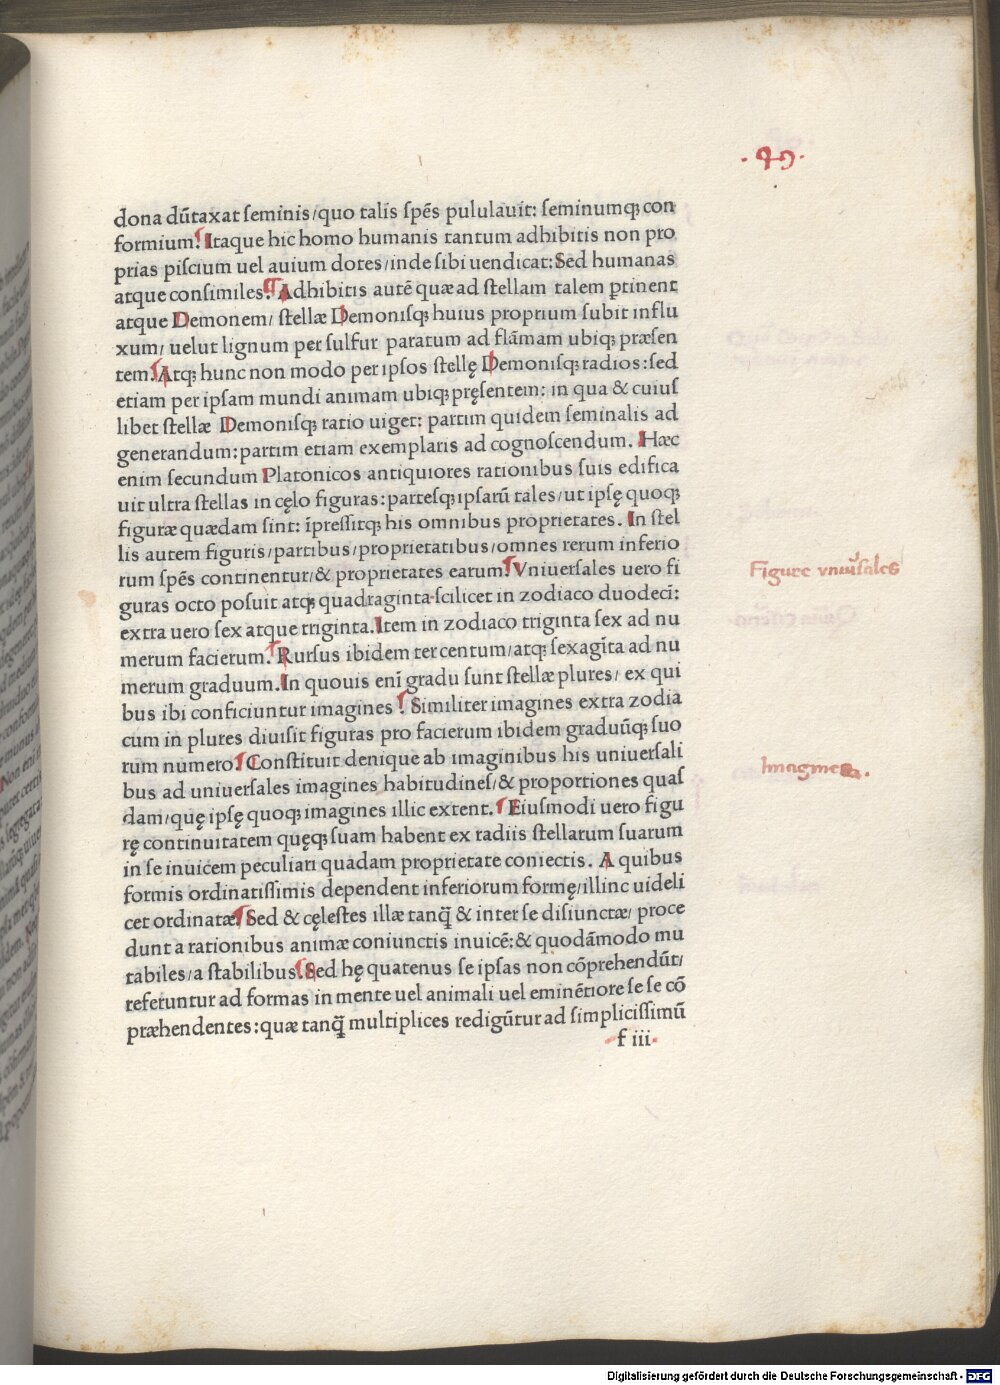 ·49·
dona dūtaxat ſeminis/quo talis ſpēs pululauit: ſeminumqȝ con
formium. Itaque hic homo humanis tantum adhibitis non pro
prias piſcium uel auium dotes/inde ſibi uendicat: Sed humanas
atque conſimiles. Adhibitis autē quæ ad ſtellam talem ꝑtinent
atque Demonem/ ſtellæ Demoniſqȝ huius proprium ſubit influ
xum/ uelut lignum per ſulfur paratum ad flāmam ubiqȝ præſen
tem. Atqȝ hunc non modo per ipſos ſtellę Demoniſqȝ radios: ſed
etiam per ipſam mundi animam ubiqȝ pręſentem: in qua & cuiuſ
libet ſtellæ Demoniſqȝ ratio uiget: partim quidem ſeminalis ad
generandum: partim etiam exemplaris ad cognoſcendum. Hæc
enim ſecundum Platonicos antiquiores rationibus ſuis edifica
uit ultra ſtellas in cęlo figuras: parteſqȝ ipſarū tales/ut ipſę quoqȝ
figuræ quædam ſint: īpreſſitqȝ his omnibus proprietates. In ſtel
lis autem figuris/partibus/proprietatibus/omnes rerum inferio
rum ſpēs continentur/& proprietates earum. Vniuerſales uero fi
Figure vniuſales
guras octo poſuit atqȝ quadraginta ſcilicet in zodiaco duodecī:
extra uero ſex atque triginta. Item in zodiaco triginta ſex ad nu
merum facierum. Rurſus ibidem ter centum/atqȝ ſexagīta ad nu
merum graduum. In quouis enī gradu ſunt ſtellæ plures/ ex qui
bus ibi conficiuntur imagines. Similiter imagines extra zodia
cum in plures diuiſit figuras pro facierum ibidem graduūqȝ ſuo
rum numero. Conſtituit denique ab imaginibus his uniuerſali
Imagines.
bus ad uniuerſales imagines habitudineſ/& proportiones quaſ
dam/quę ipſę quoqȝ imagines illic extent. Eiuſmodi uero figu
rę continuitatem quęqȝ ſuam habent ex radiis ſtellarum ſuarum
in ſe inuicem peculiari quadam proprietate coniectis. A quibus
formis ordinatiſſimis dependent inferiorum formę/illinc uideli
cet ordinatæ. Sed & cęleſtes illæ tanq̄ & inter ſe diſiunctæ/ proce
dunt a rationibus animæ coniunctis inuicē: & quodāmodo mu
tabiles/a ſtabilibus. Sed hę quatenus ſe ipſas non cōprehendūt/
referuntur ad formas in mente uel animali uel eminētiore ſe ſe cō
præhendentes: quæ tanq̄ multiplices redigūtur ad ſimpliciſſimū
f iii
Digitalisierung gefördert durch die Deutsche Forschungsgemeinschaft - DFG